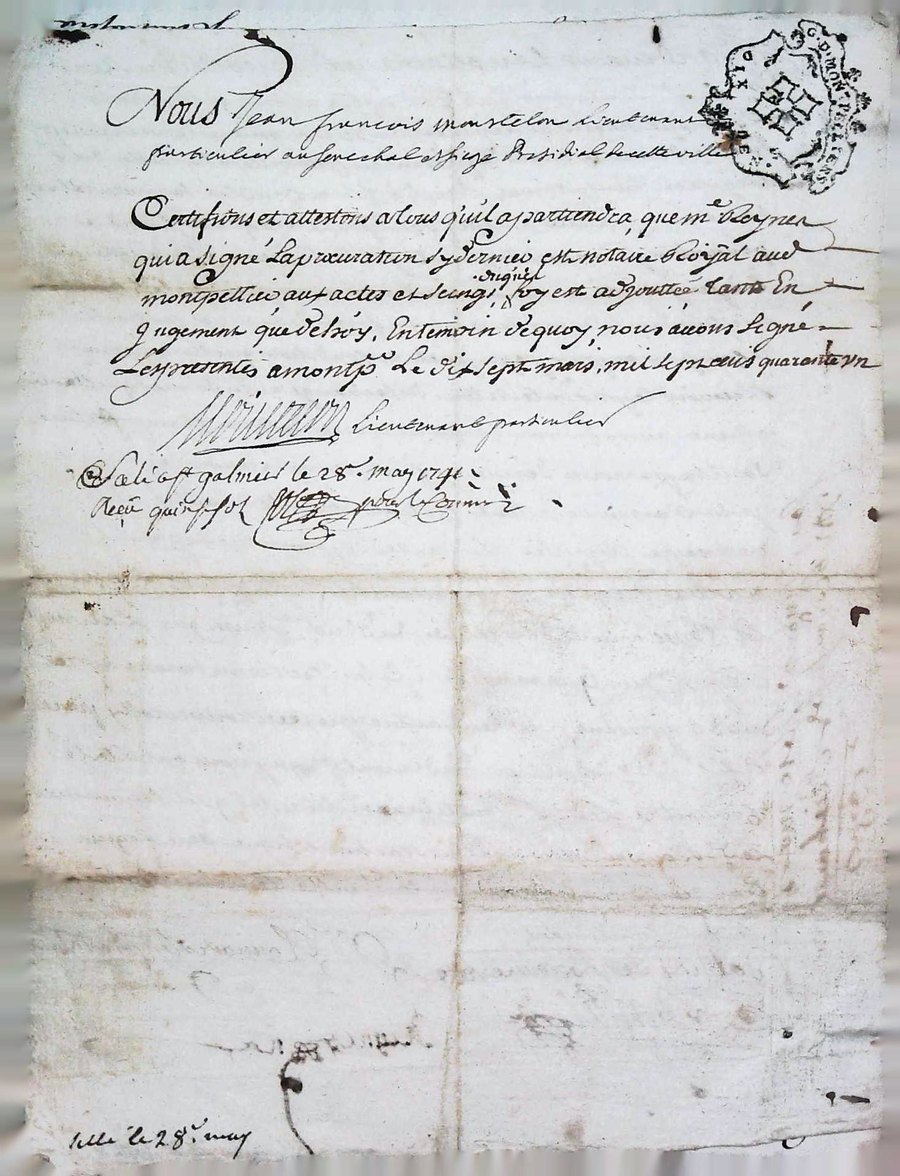 G. D. MONTPELLIER
DIX DEN
Nous Jean françois lieutenant
particulier au senechal et siege Presidial de cette ville
Certifions et attestons a tous qu'il apartiendra, que mᵉ Reynes
qui a signé La procuration sy dernier est notaire Royal aud
montpellier aux actes et seings duquel foy est adjouttée tant En
Jugement que dehors, En temoin de quoy, nous avons signé
Les presentes a montpʳ Le dix sept mars, mil sept cens quarante un
Lieutenant particulier
Scelé a sᵗ galmier le 28ᵉ. may 1741
Reçu quinze sol pour le
sellé le 28ᵉ. may